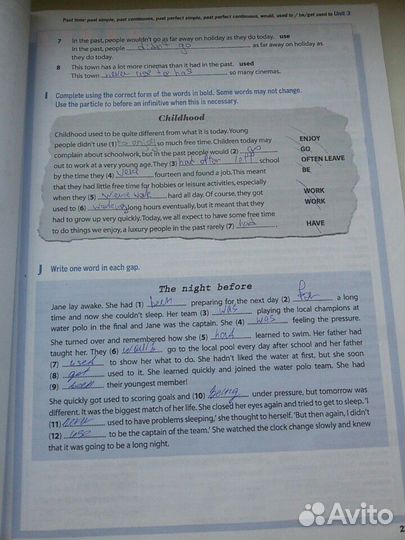 Past time: past simple, past continuous, past perfect simple, past perfect continuous, would, used to / be/get used to Unit 3
7 In the past, people wouldn't go as far away on holiday as they do today. use
In the past, people didn't go as far away on holiday as
they do today.
8 This town has a lot more cinemas than it had in the past. used
This town never use to has so many cinemas.
I Complete using the correct form of the words in bold. Some words may not change.
Use the particle to before an infinitive when this is necessary.
Childhood
Childhood used to be quite different from what it is today. Young
people didn't use (1) to enjoy so much free time. Children today may
complain about schoolwork, but in the past people would (2) go
out to work at a very young age. They (3) had often left school
by the time they (4) were fourteen and found a job. This meant
that they had little free time for hobbies or leisure activities, especially
when they (5) work hard all day. Of course, they got
used to (6) working long hours eventually, but it meant that they
had to grow up very quickly. Today, we all expect to have some free time
to do things we enjoy, a luxury people in the past rarely (7) had.
ENJOY
GO
OFTEN LEAVE
BE
WORK
WORK
HAVE
J Write one word in each gap.
The night before
Jane lay awake. She had (1) been preparing for the next day (2) for a long
time and now she couldn't sleep. Her team (3) was playing the local champions at
water polo in the final and Jane was the captain. She (4) was feeling the pressure.
She turned over and remembered how she (5) had learned to swim. Her father had
taught her. They (6) would go to the local pool every day after school and her father
(7) used to show her what to do. She hadn't liked the water at first, but she soon
(8) got used to it. She learned quickly and joined the water polo team. She had
(9) been their youngest member!
She quickly got used to scoring goals and (10) being under pressure, but tomorrow was
different. It was the biggest match of her life. She closed her eyes again and tried to get to sleep. 'I
(11) never used to have problems sleeping,' she thought to herself. 'But then again, I didn't
(12) use to be the captain of the team.' She watched the clock change slowly and knew
that it was going to be a long night.
2
Avito